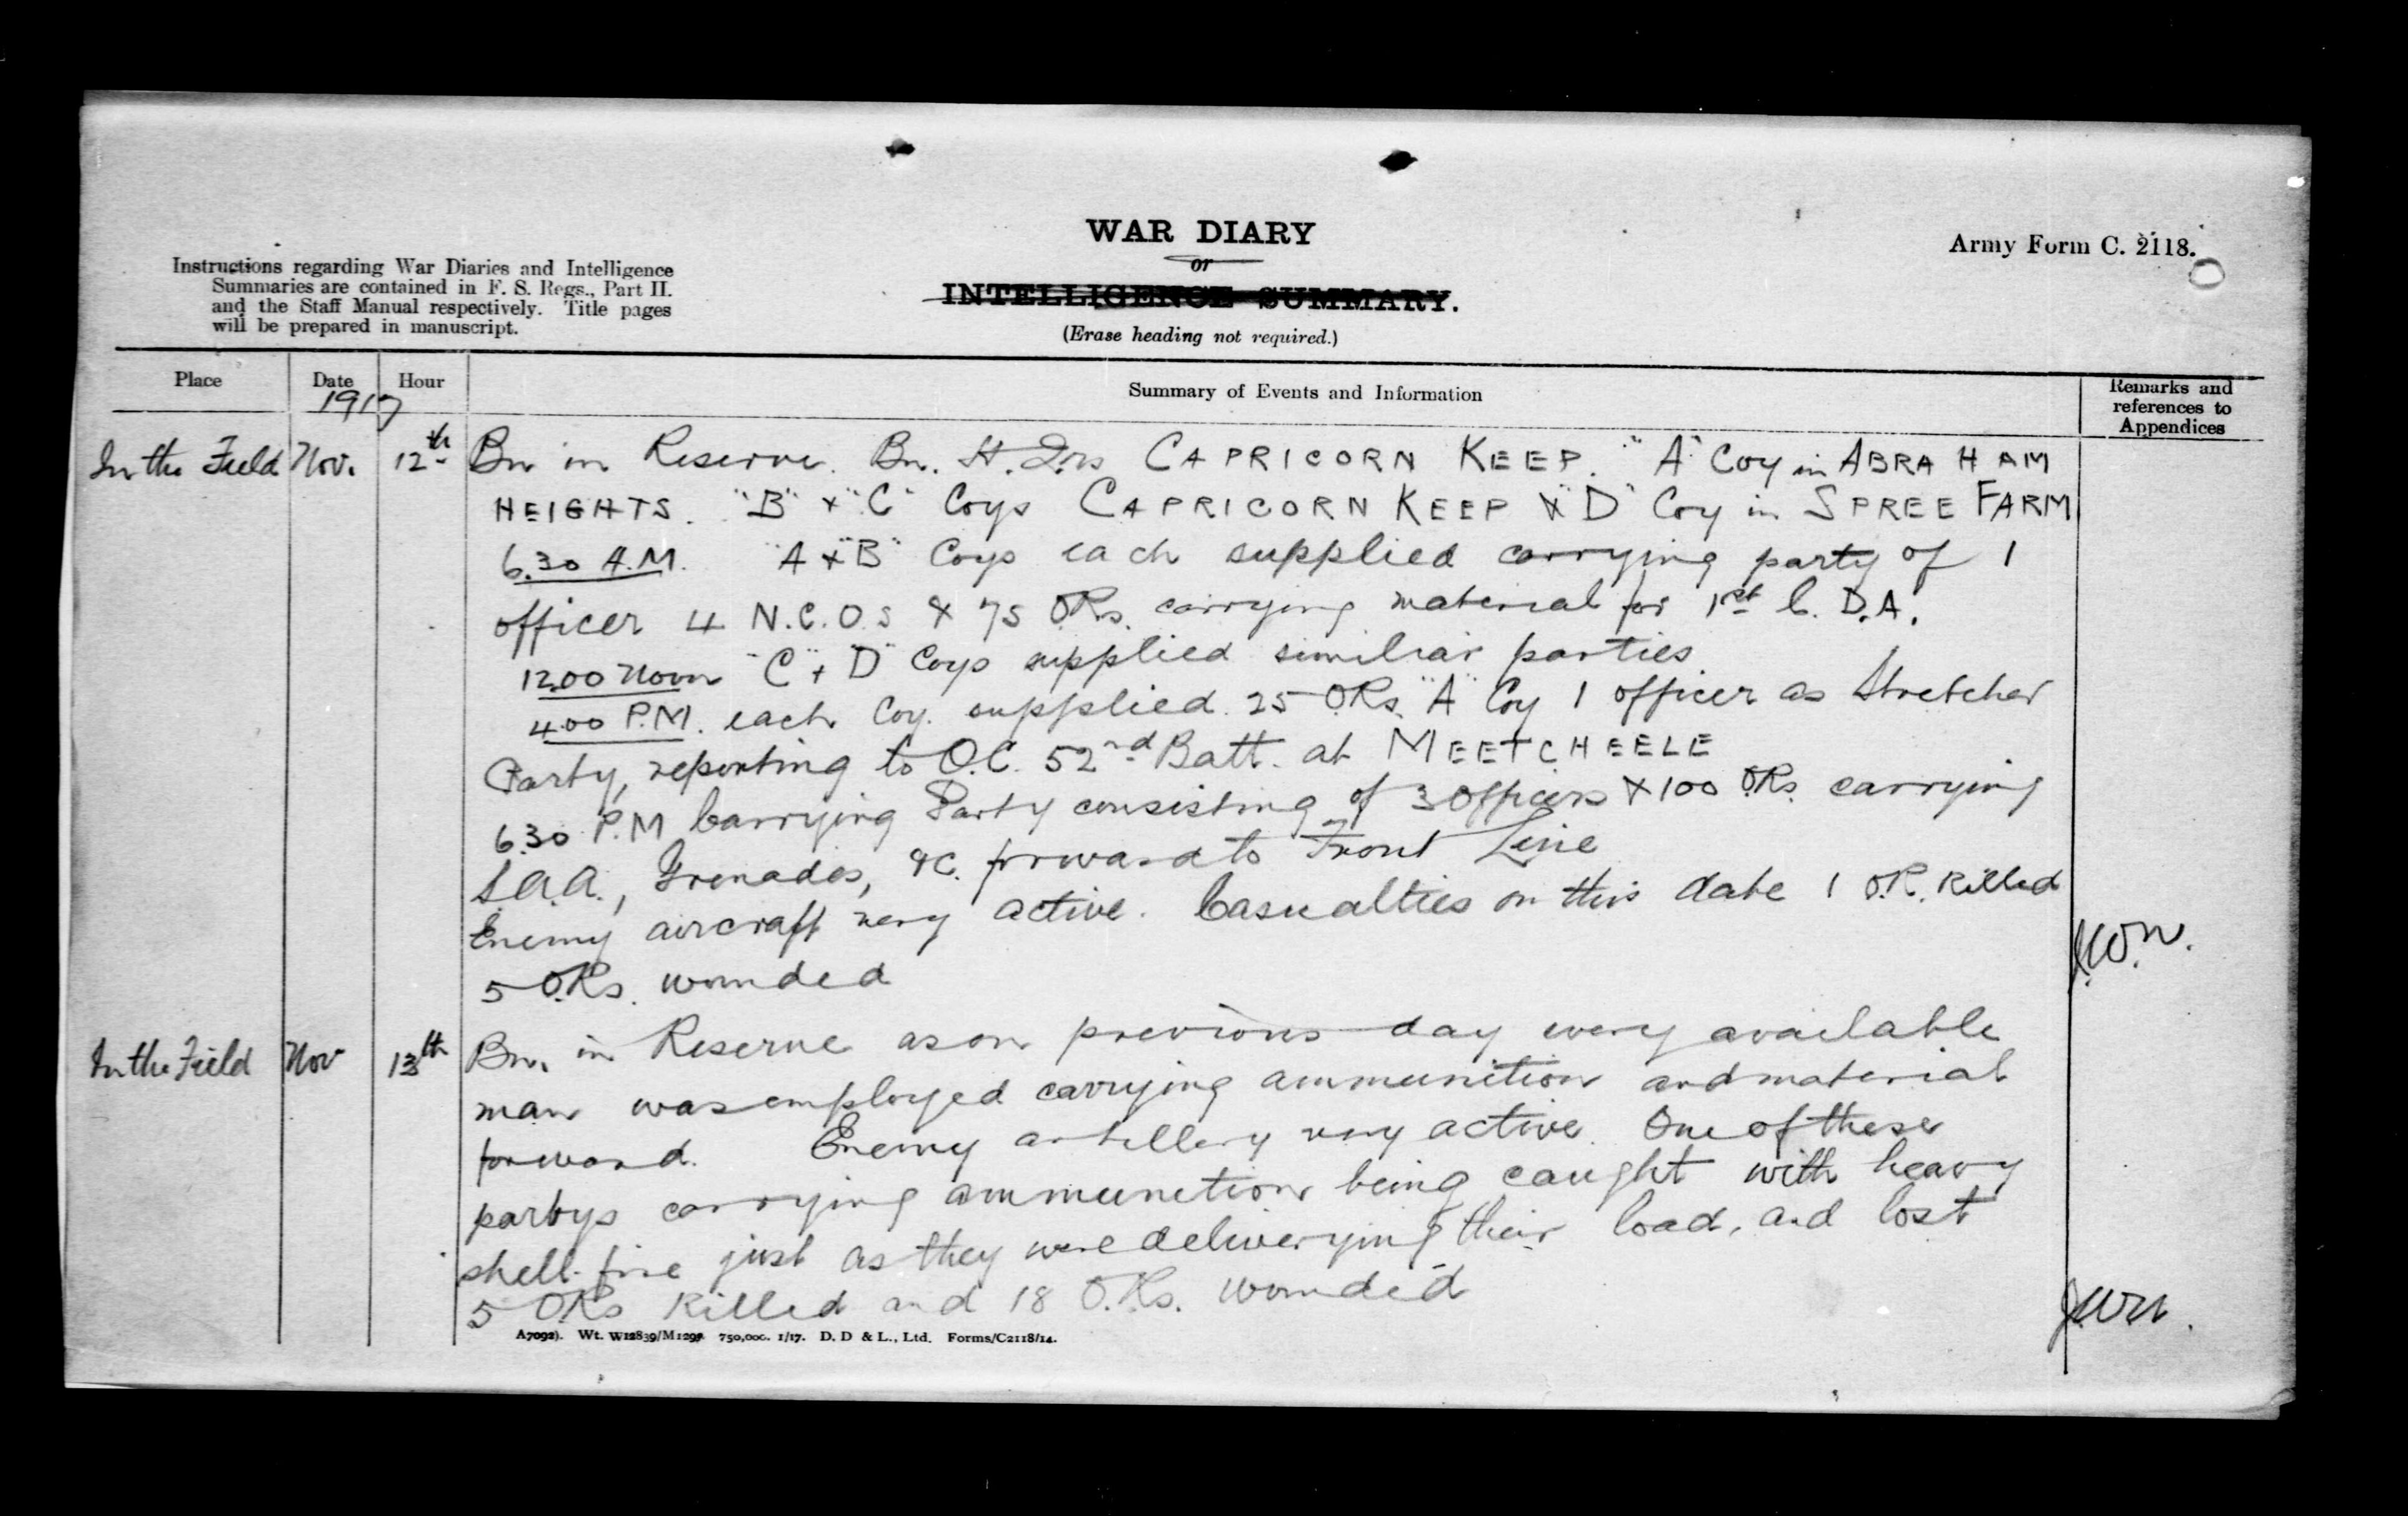 WAR DIARY
or
INTELLIGENCE SUMMARY.
(Erase heading not required.)
Army Form C. 2118.
Instructions regarding War Diaries and Intelligence
Summaries are contained in F. S. Regs., Part II.
and the Staff Manual respectively. Title pages
will be prepared in manuscript.
Place Date Hour Summary of Events and Information Remarks and references to Appendices
1917
In the Field Nov. 12th Bn in Reserve. Bn. H. Qrs CAPRICORN KEEP. "A" Coy in ABRAHAM
HEIGHTS. "B" + "C" Coys CAPRICORN KEEP & "D" Coy in SPREE FARM
6.30 A.M. "A + "B" Coys each supplied carrying party of 1
officer 4 N.C.O.s & 75 ORs. carrying material for 1st C. D.A.
12.00 Noon "C" + D" Coys supplied similiar parties.
4.00 P.M. each Coy. supplied 25 ORs. "A" Coy 1 officer as Stretcher
Party, reporting to O.C. 52nd Batt. at MEETCHEELE
6.30 P.M Carrying Party consisting of 3 Officers & 100 ORs. carrying
S.A.A., Grenades, &c. forward to Front Line
Enemy aircraft very active. Casualties on this date 1 O.R. Killed
5 ORs. wounded
J.W.N.
In the Field Nov 13th Bn. in Reserve as on previous day every available
man was employed carrying ammunition and material
forward. Enemy artillery very active. One of these
partys carrying ammunition being caught with heavy
shell-fire just as they were deliverying their load, and lost
5 ORs Killed and 18 O.Rs. wounded
A7092). Wt. W12839/M1297 750,000. 1/17. D. D & L., Ltd. Forms/C2118/14.